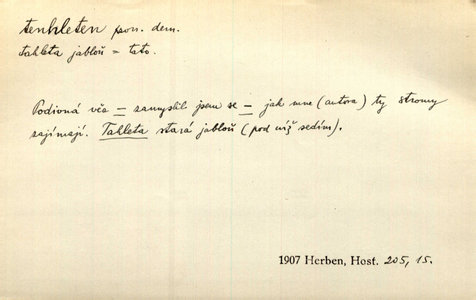 tenhleten pron. dem.
tahleta jabloň = tato.
Podivná věc — zamyslil jsem se — jak mne (autora) ty stromy
zajímají. Tahleta stará jabloň (pod níž sedím).
1907 Herben, Host. 205, 15.